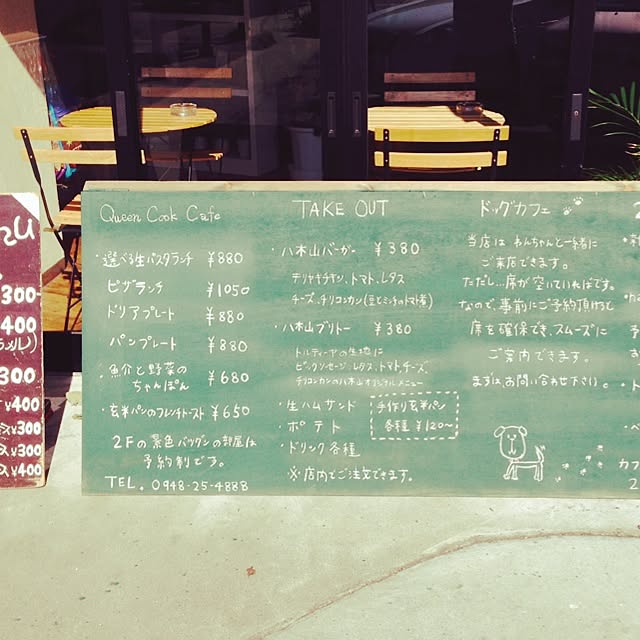 nu
300
400
ラメル)
300
¥400
ス¥300
ス¥300
ス¥400
Queen Cook Cafe
・選べる生パスタランチ ¥880
ピザランチ ¥1050
ドリアプレート ¥880
パンプレート ¥880
・魚介と野菜の
ちゃんぽん ¥680
・玄米パンのフレンチトースト ¥650
2Fの景色バツグンの部屋は
予約制です。
TEL. 0948-25-4888
TAKE OUT
・八木山バーガー ¥380
テリヤキチキン、トマト、レタス
チーズ、チリコンカン(豆とミンチのトマト煮)
・八木山ブリトー ¥380
トルティーアの生地に
ビックソーセージ、レタス、トマト、チーズ、
チリコンカンの八木山オリジナルメニュー
・生ハムサンド
・ポテト
・ドリンク各種
手作り玄米パン
各種 ¥120〜
※店内でご注文できます。
ドッグカフェ
当店は わんちゃんと一緒に
ご来店できます。
ただし…席が空いていればです。
なので、事前にご予約頂けると
席を確保でき、スムーズに
ご案内できます。
まずはお問い合わせ下さい。
カフ
2